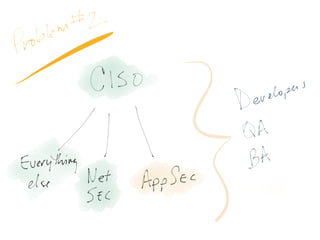 Problem #2
CISO
Everything
else
Net
SEC
AppSec
Developers
QA
BA